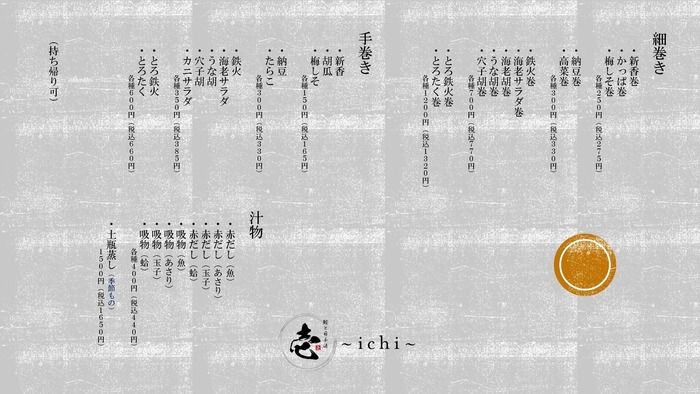 細巻き
・新香巻
・かっぱ巻
・梅しそ巻
各種250円（税込275円）
・納豆巻
・高菜巻
各種300円（税込330円）
・鉄火巻
・海老サラダ巻
・海老胡巻
・うな胡巻
・穴子胡巻
各種700円（税込770円）
・とろ鉄火巻
・とろたく巻
各種1200円（税込1320円）
手巻き
・新香
・胡瓜
・梅しそ
各種150円（税込165円）
・納豆
・たらこ
各種300円（税込330円）
・鉄火
・海老サラダ
・うな胡
・穴子胡
・カニサラダ
各種350円（税込385円）
・とろ鉄火
・とろたく
各種600円（税込660円）
（持ち帰り可）
汁物
・赤だし（魚）
・赤だし（あさり）
・赤だし（玉子）
・赤だし（蛤）
・吸物（魚）
・吸物（あさり）
・吸物（玉子）
・吸物（蛤）
各種400円（税込440円）
・土瓶蒸し（季節もの）
1500円（税込1650円）
壱
~ichi~